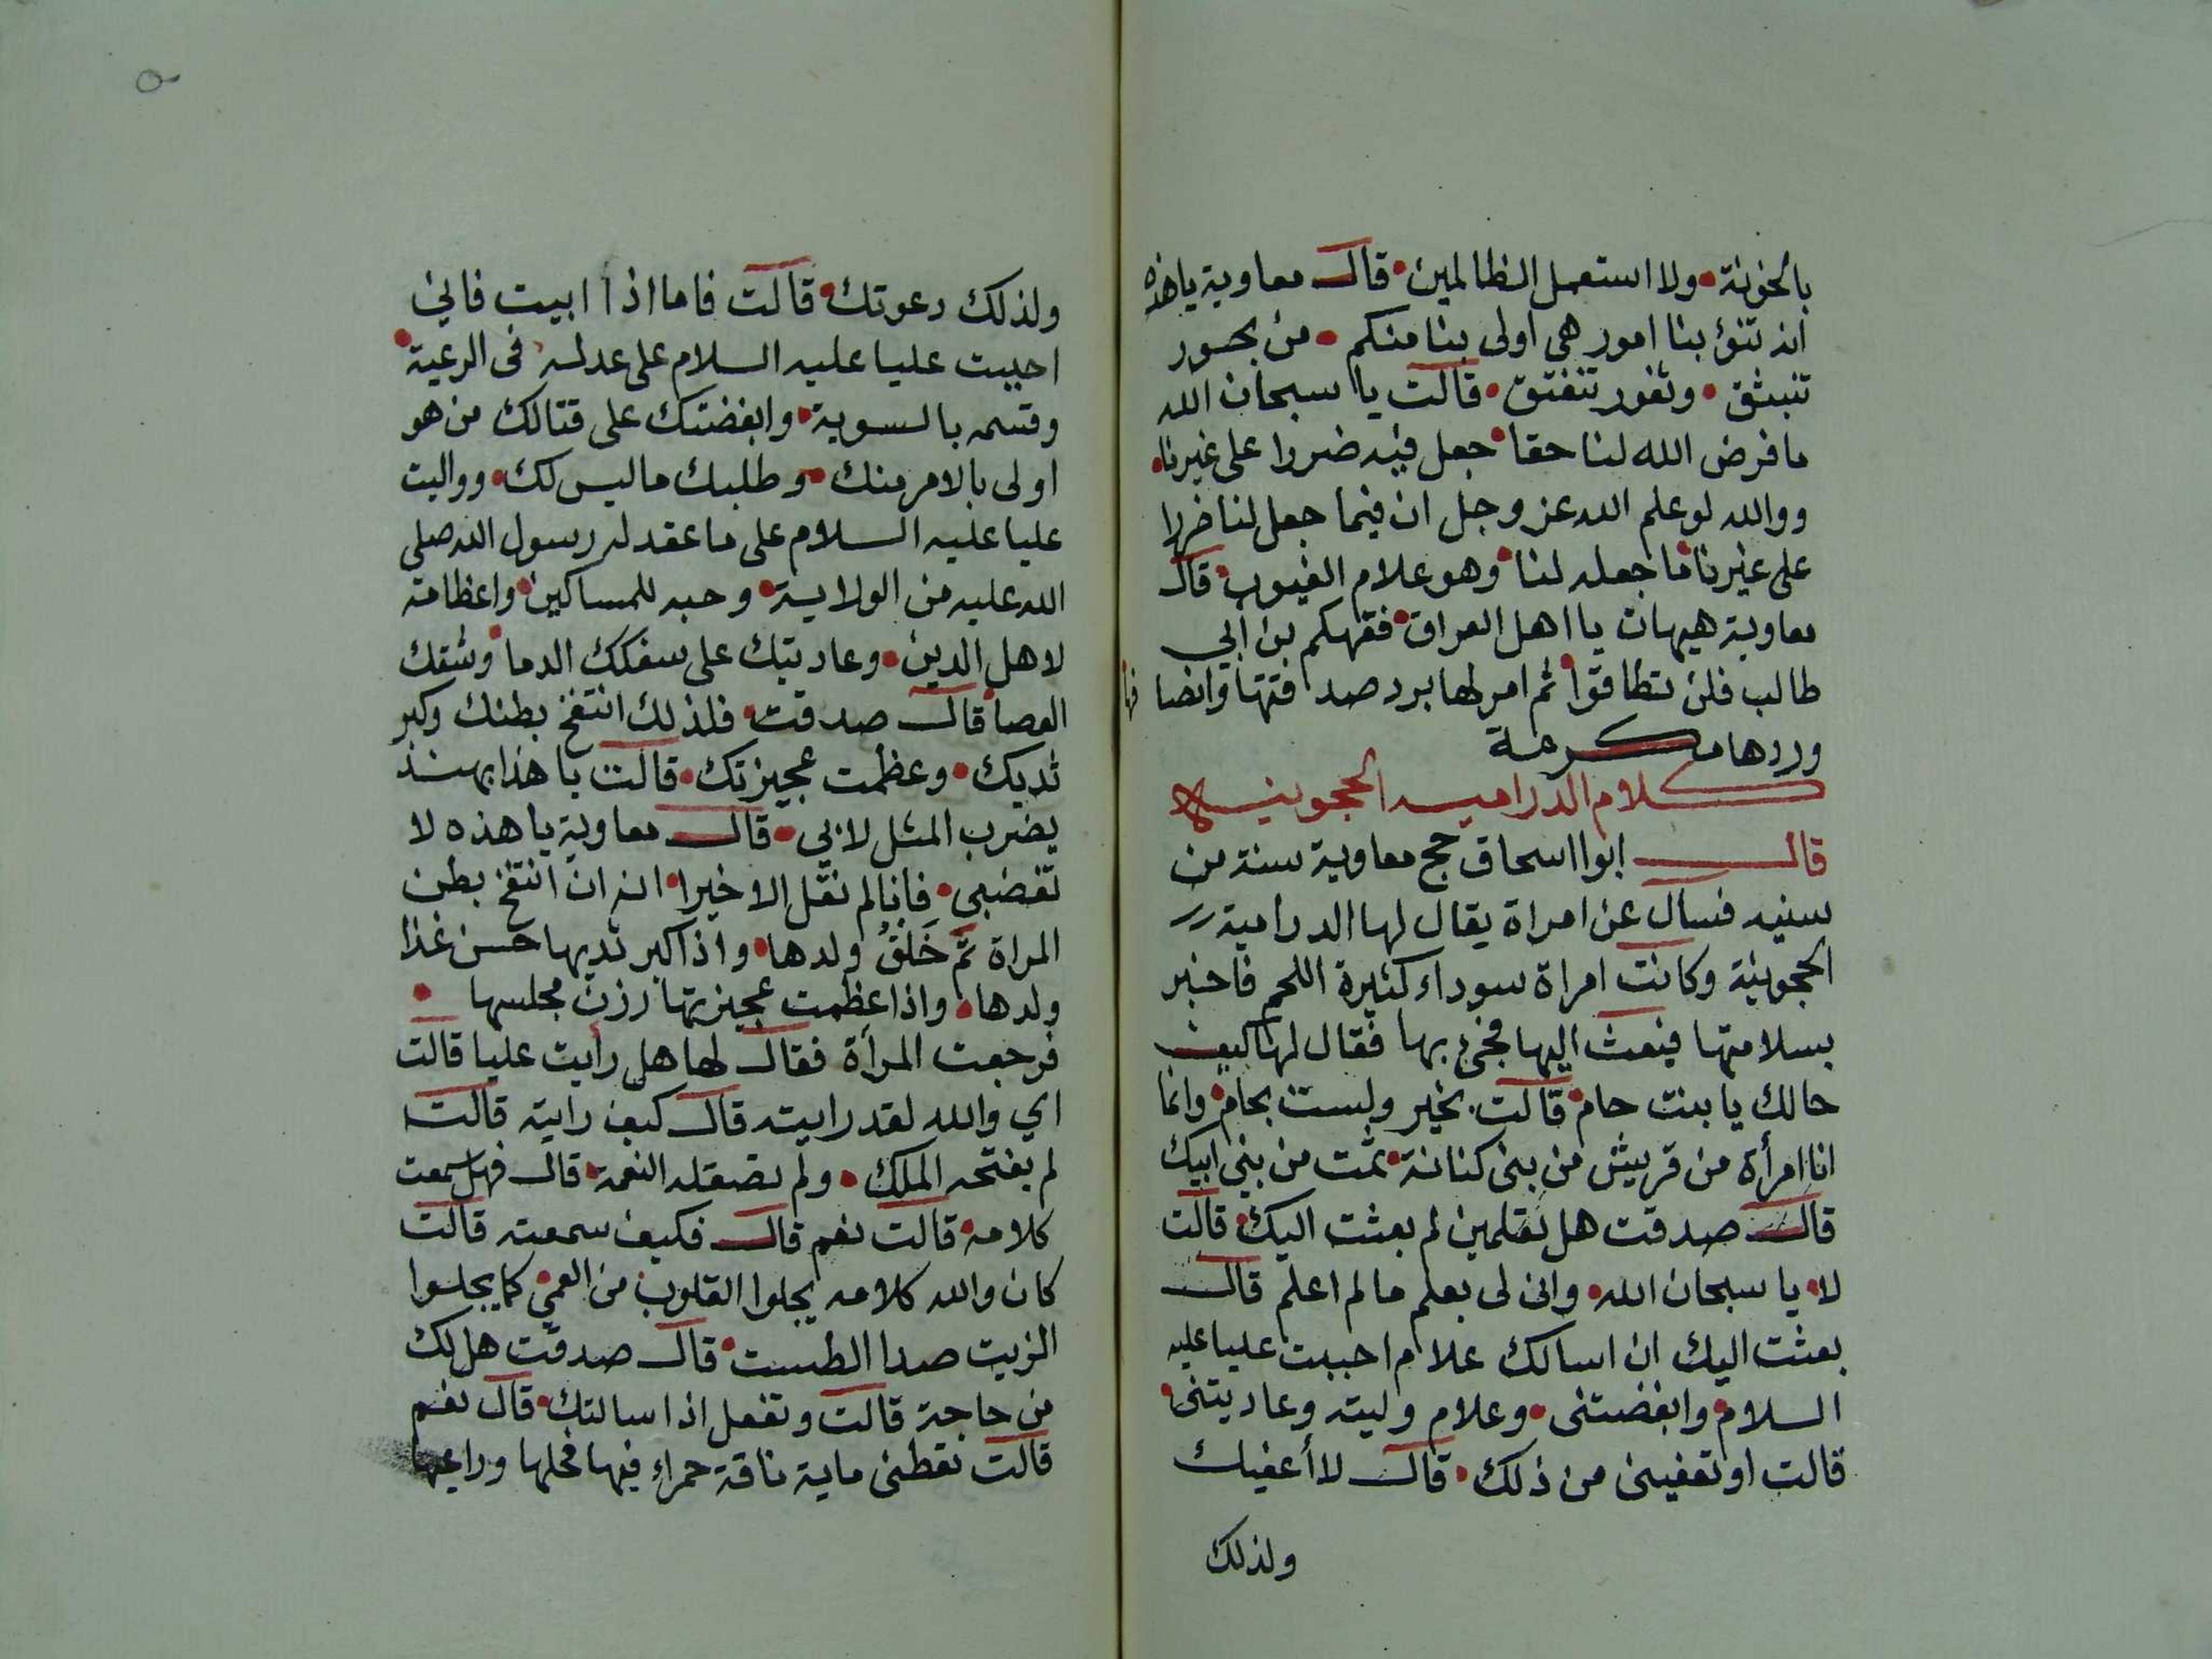 بالخونة ولا استعمل الظالمين قال معاوية ياهذه
انه تنؤ بنا امور هي اولى بنا منكم من بحور
تنبثق وثغور تنفتق قالت يا سبحان الله
ما فرض الله لنا حقا جعل فيه ضررا على غيرنا
ووالله لو علم الله عز وجل ان فيما جعل لنا ضررا
على غيرنا ما جعله لنا وهو علام الغيوب قال
معاوية هيهات يا اهل العراق فقهكم بن ابي
طالب فلن تطاقوا ثم امر لها برد صدقتها وانصافها
وردها مكرمة
كلام الدراميه الحجونيه
قال ابوا اسحاق حج معاوية سنة من
سنيه فسال عن امراة يقال لها الدرامية
الحجونية وكانت امراة سوداء كثيرة اللحم فاخبر
بسلامتها فبعث اليها فجئ بها فقال لها كيف
حالك يا بنت حام قالت بخير ولست بحام وانما
انا امرأة من قريش من بنى كنانة ثمت من بني ابيك
قال صدقت هل تعلمين لم بعثت اليك قالت
لا يا سبحان الله وانى لى بعلم ما لم اعلم قال
بعثت اليك ان اسالك علام احببت عليا عليه
السلام وابغضتنى وعلام وليته وعاديتنى
قالت او تعفينى من ذلك قال لا أعفيك
ولذلك
ولذلك دعوتك قالت فاما اذا ابيت فاني
احببت عليا عليه السلام على عدله فى الرعية
وقسمه بالسوية وابغضتك على قتالك من هو
اولى بالامر منك وطلبك ما ليس لك وواليت
عليا عليه السلام على ما عقد له رسول الله صلى
الله عليه من الولاية وحبه للمساكين واعظامه
لاهل الدين وعاديتك على سفكك الدما وشقك
العصا قال صدقت فلذلك انتفخ بطنك وكبر
ثديك وعظمت عجيزتك قالت يا هذا بهند
يضرب المثل لا بي قال معاوية يا هذه لا
تغضبي فانا لم نقل الا خيرا انه ان انتفخ بطن
المراة تم خلق ولدها واذا كبر ثديها حسن غذا
ولدها واذا عظمت عجيزتها رزن مجلسها
فرجعت المرأة فقال لها هل رايت عليا قالت
اي والله لقد رايته قال كيف رايته قالت
لم يفتحه الملك ولم تصقله النعمة قال فهل سمعت
كلامه قالت نعم قال فكيف سمعته قالت
كان والله كلامه يجلوا القلوب من العمى كما يجلوا
الزيت صدا الطست قال صدقت هل لك
من حاجة قالت وتفعل اذا سالتك قال نعم
قالت تعطنى ماية ناقة حمراء فيها فحلها وراعيها